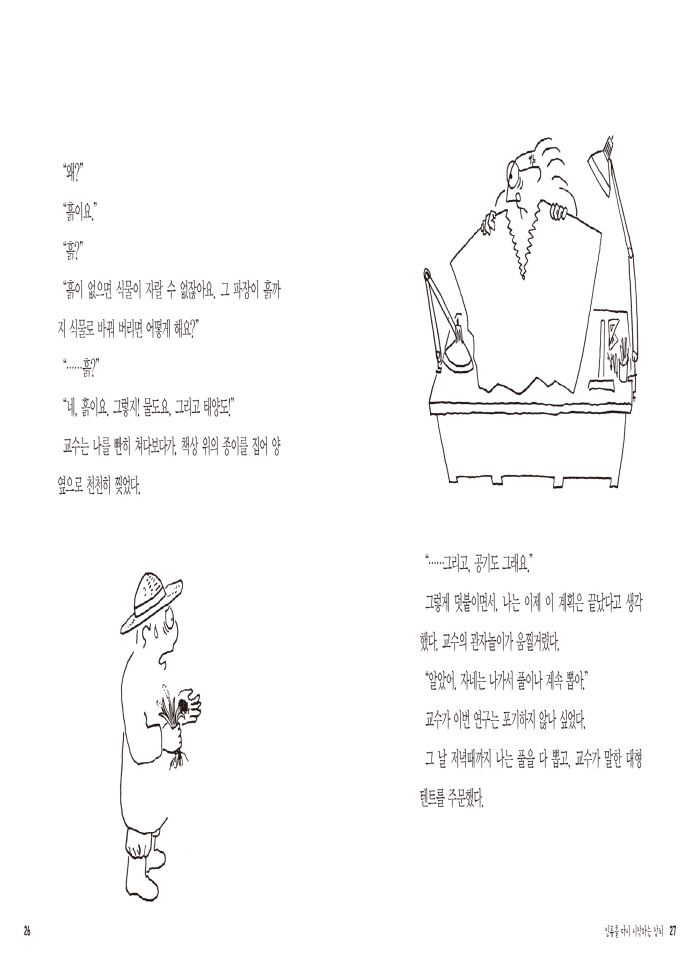 “왜?”
“흙이요.”
“흙?”
“흙이 없으면 식물이 자랄 수 없잖아요. 그 파장이 흙까
지 식물로 바꿔 버리면 어떻게 해요?”
“……흙?”
“네, 흙이요. 그렇지! 물도요, 그리고 태양도!”
교수는 나를 빤히 쳐다보다가, 책상 위의 종이를 집어 양
옆으로 천천히 찢었다.
26
“……그리고, 공기도 그래요.”
그렇게 덧붙이면서, 나는 이제 이 계획은 끝났다고 생각
했다. 교수의 관자놀이가 움찔거렸다.
“알았어. 자네는 나가서 풀이나 계속 뽑아.”
교수가 이번 연구는 포기하지 않나 싶었다.
그 날 저녁때까지 나는 풀을 다 뽑고, 교수가 말한 대형
텐트를 주문했다.
인류를 다시 시작하는 장치 27